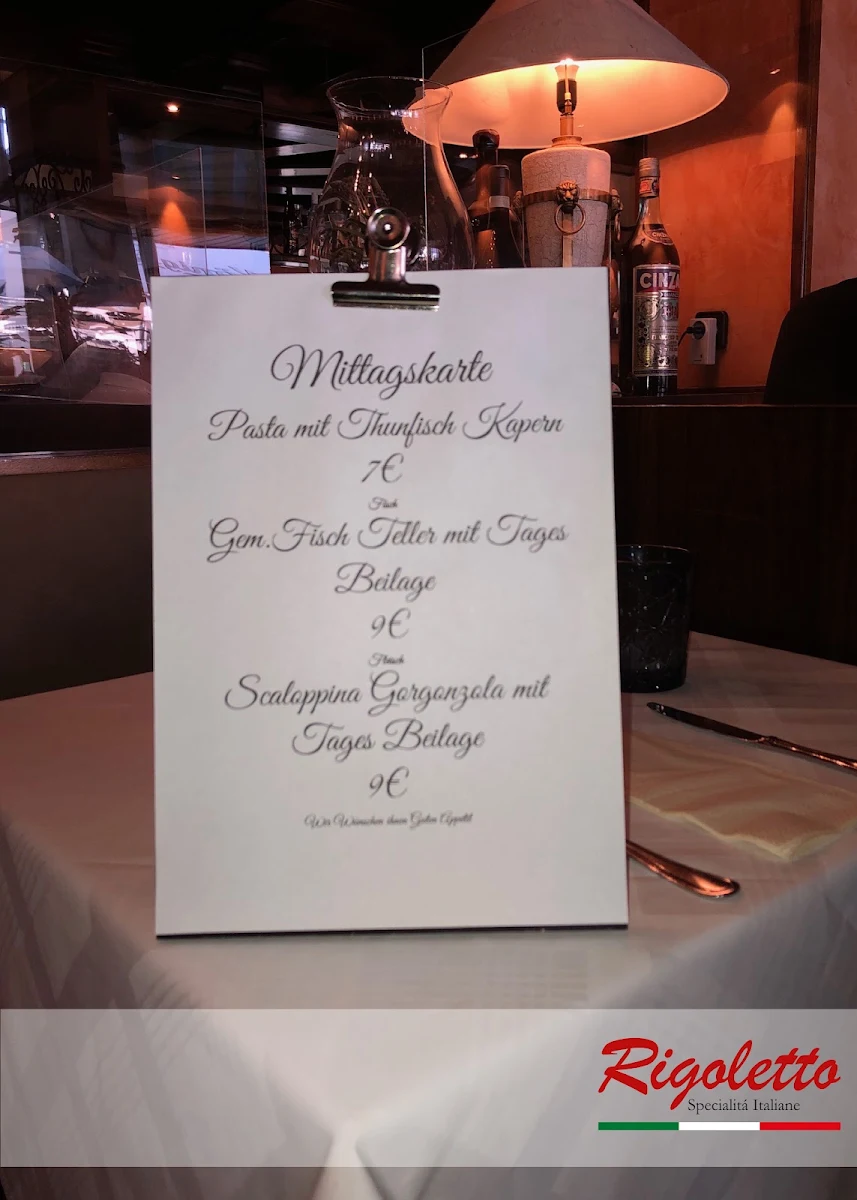 CINZ
Mittagskarte
Pasta mit Thunfisch Kapern
7€
Fisch
Gem.Fisch Teller mit Tages
Beilage
9€
Fleisch
Scaloppina Gorgonzola mit
Tages Beilage
9€
Wir Wünschen ihnen Guten Appetit
Rigoletto
Specialitá Italiane